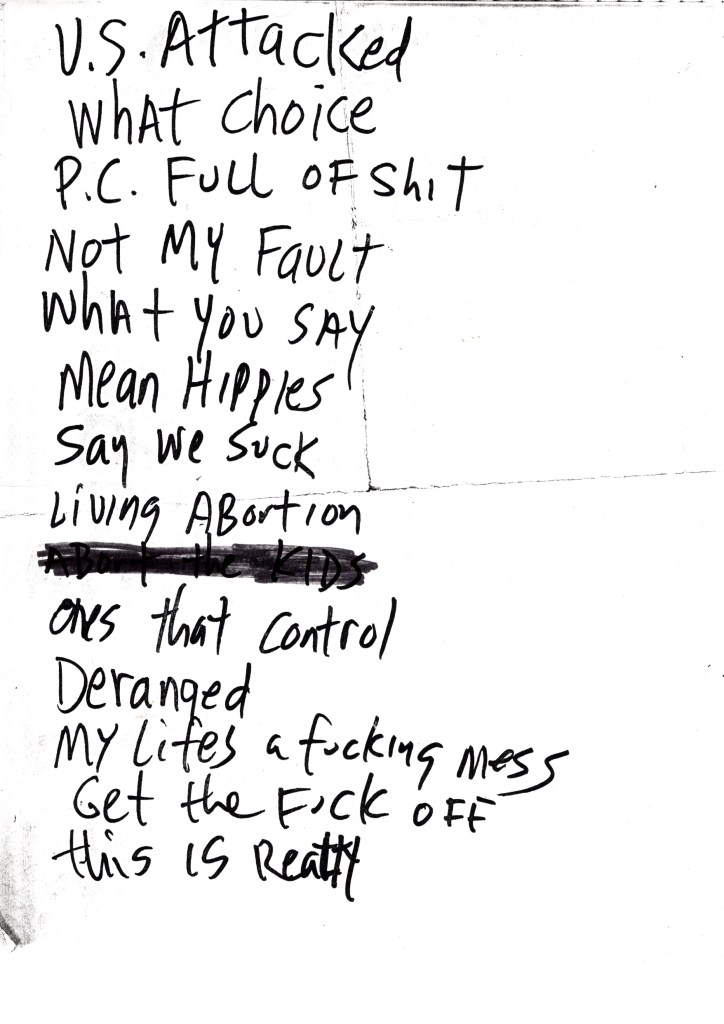 U.S. Attacked
What Choice
P.C. Full of Shit
Not My Fault
What You Say
Mean Hippies
Say We Suck
Living Abortion
Abort the Kids
Ones that Control
Deranged
My Lifes a fucking Mess
Get the Fuck Off
this is Reality